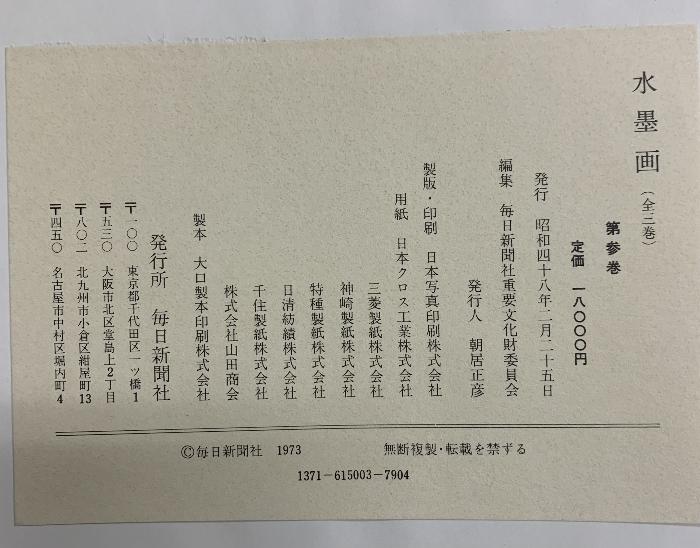 水墨画(全三巻)
第参巻
定価 一八〇〇〇円
発行 昭和四十八年二月二十五日
編集 毎日新聞社重要文化財委員会
発行人 朝居正彦
製版・印刷 日本写真印刷株式会社
用紙 日本クロス工業株式会社
三菱製紙株式会社
神崎製紙株式会社
特種製紙株式会社
日清紡績株式会社
千住製紙株式会社
株式会社山田商会
製本 大口製本印刷株式会社
発行所 毎日新聞社
〒一〇〇 東京都千代田区一ツ橋1
〒五三〇 大阪市北区堂島上2丁目
〒八〇二 北九州市小倉区紺屋町13
〒四五〇 名古屋市中村区堀内町4
©毎日新聞社 1973 無断複製・転載を禁ずる
1371-615003-7904